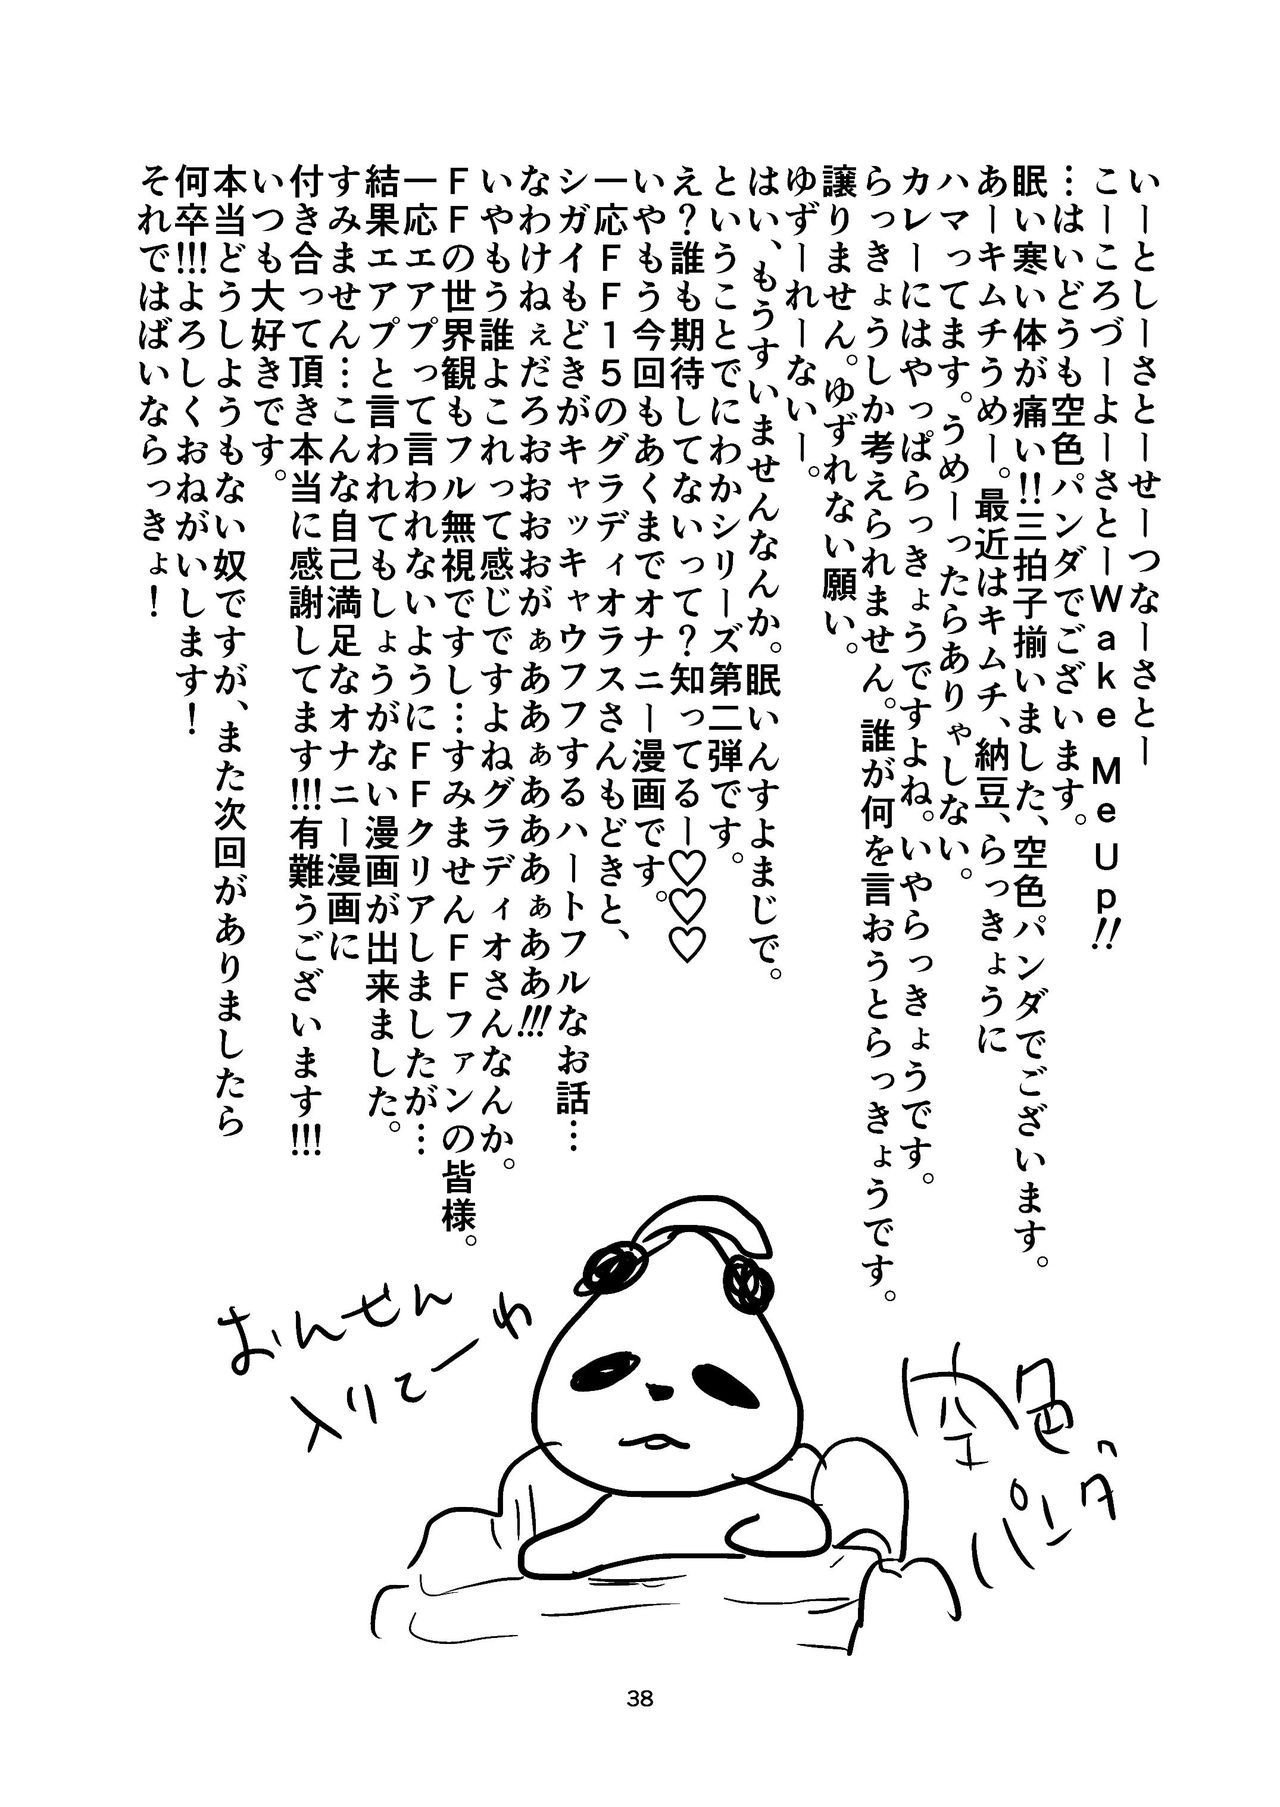 いーとしーさとーせーつなーさとー
こーころづーよーさとーWake Me Up!!
…はいどうも空色パンダでございます。
眠い寒い体が痛い!!三拍子揃いました、空色パンダでございます。
あーキムチうめー。最近はキムチ、納豆、らっきょうに
ハマってます。うめーったらありゃしない。
カレーにはやっぱらっきょうですよね。いやらっきょうです。
らっきょうしか考えられません。誰が何を言おうとらっきょうです。
譲りません。ゆずれない願い。
ゆずーれーないー。
はい、もうすいませんなんか。眠いんすよまじで。
ということでにわかシリーズ第二弾です。
え？誰も期待してないって？知ってるー♡♡♡
いやもう今回もあくまでオナニー漫画です。
一応ＦＦ１５のグラディオラスさんもどきと、
シガイもどきがキャッキャウフフするハートフルなお話…
なわけねぇだろおおおおがぁああぁあああぁああ!!!
いやもう誰よこれって感じですよねグラディオさんなんか。
ＦＦの世界観もフル無視ですし…すみませんＦＦファンの皆様。
一応エアプって言われないようにＦＦクリアしましたが…
結果エアプと言われてもしょうがない漫画が出来ました。
すみません…こんな自己満足なオナニー漫画に
付き合って頂き本当に感謝してます!!!有難うございます!!!
いつも大好きです。
本当どうしようもない奴ですが、また次回がありましたら
何卒!!!よろしくおねがいします！
それではばいならっきょ！
おんせん
入りてーわ
空色
パンダ
38